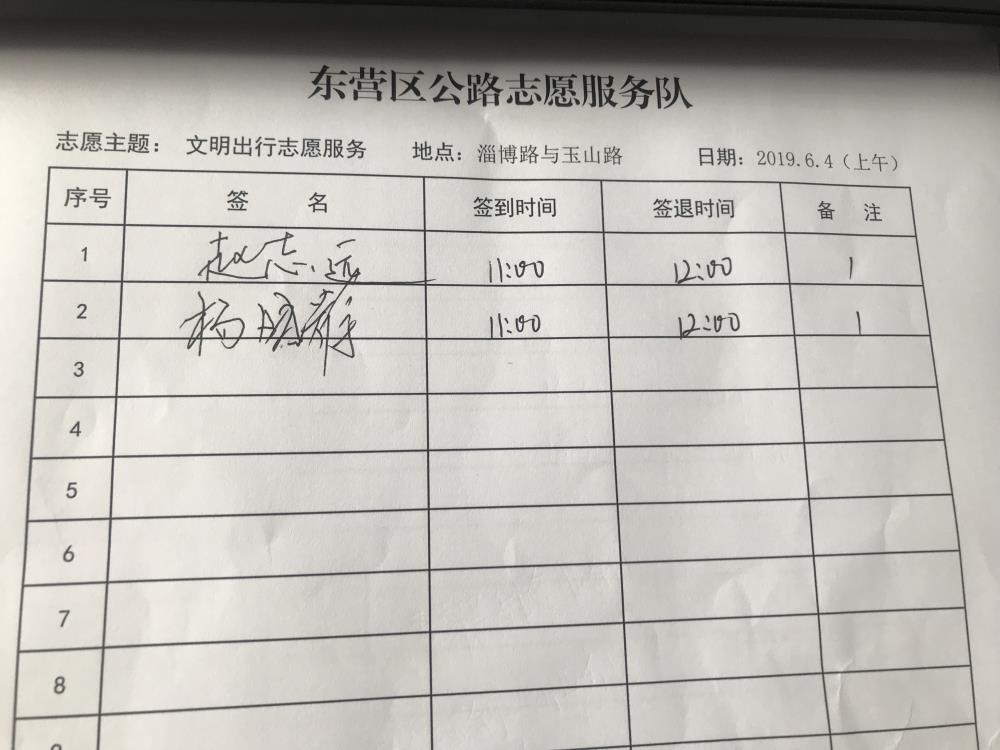 东营区公路志愿服务队
志愿主题： 文明出行志愿服务 地点：淄博路与玉山路 日期：2019.6.4（上午）
序号 签 名 签到时间 签退时间 备 注
1 赵志远 11:00 12:00 1
2 杨 11:00 12:00 1
3
4
5
6
7
8